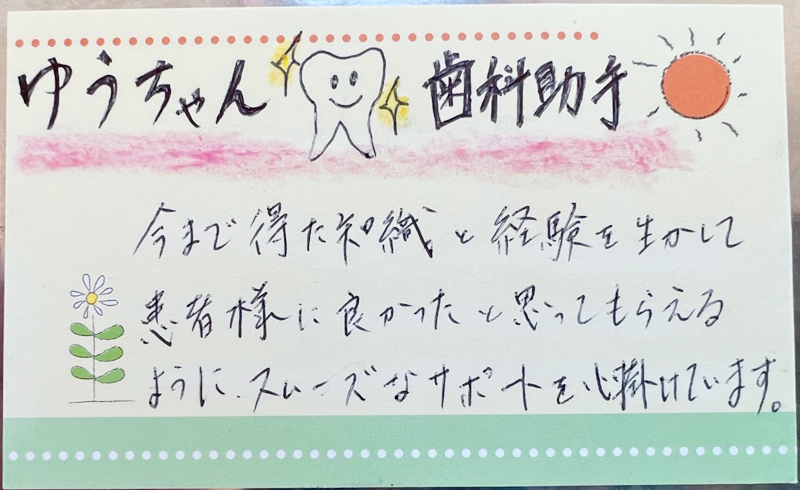 ゆうちゃん 歯科助手
今まで得た知織と経験を生かして
患者様に良かったと思ってもらえる
ように、スムーズなサポートを心掛けています。